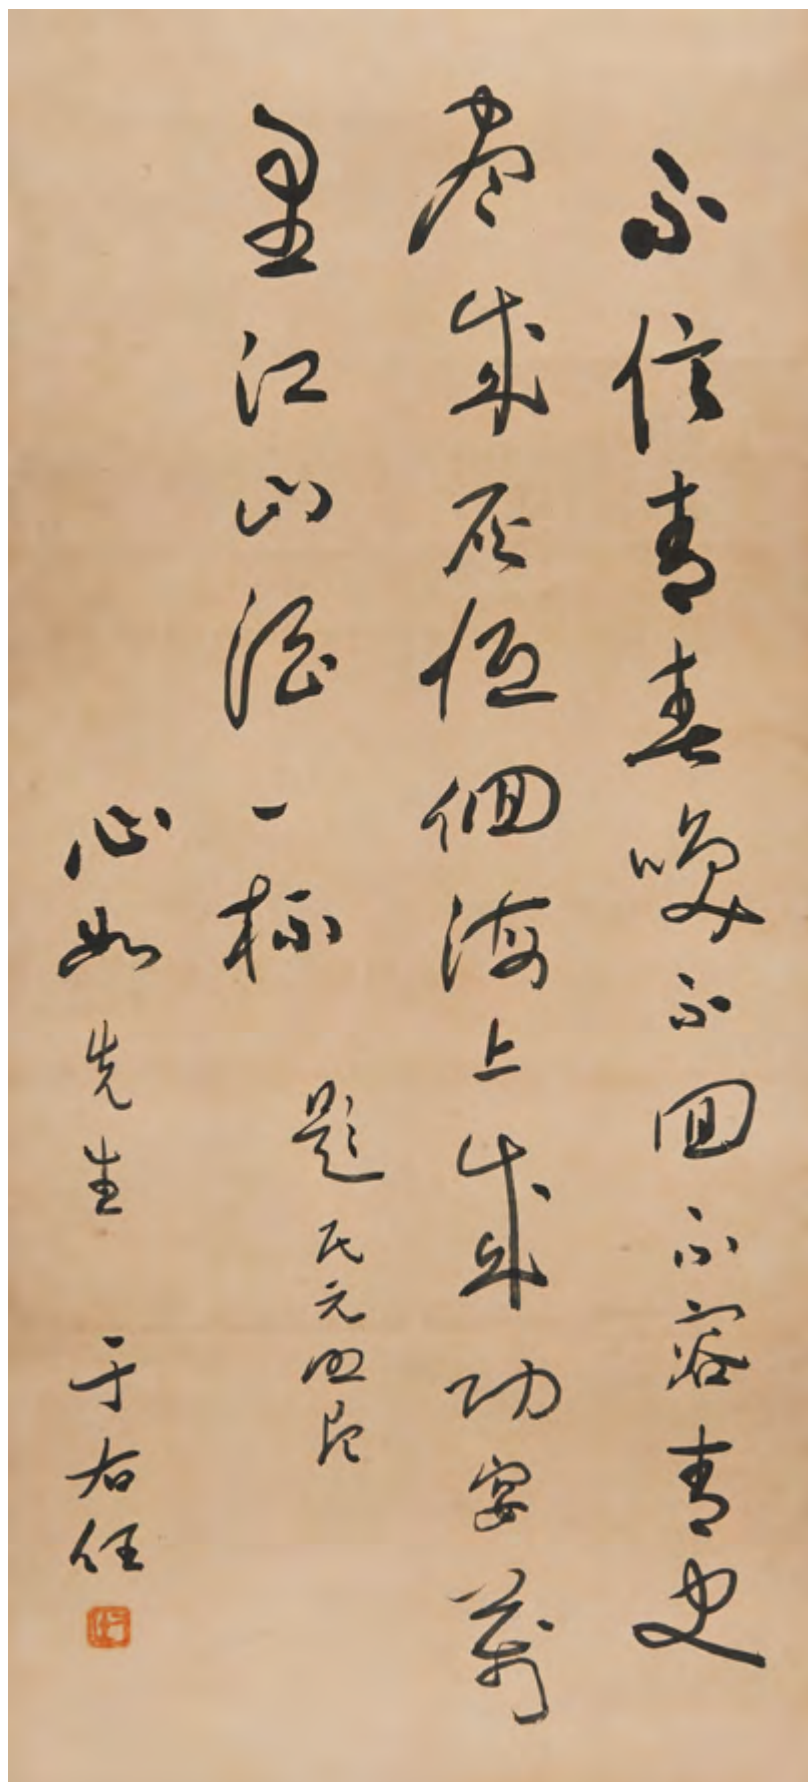 不信青春喚不回不容青史
盡成灰低佪海上成功宴萬
里江山酒一杯
題民元照片
心如先生 于右任